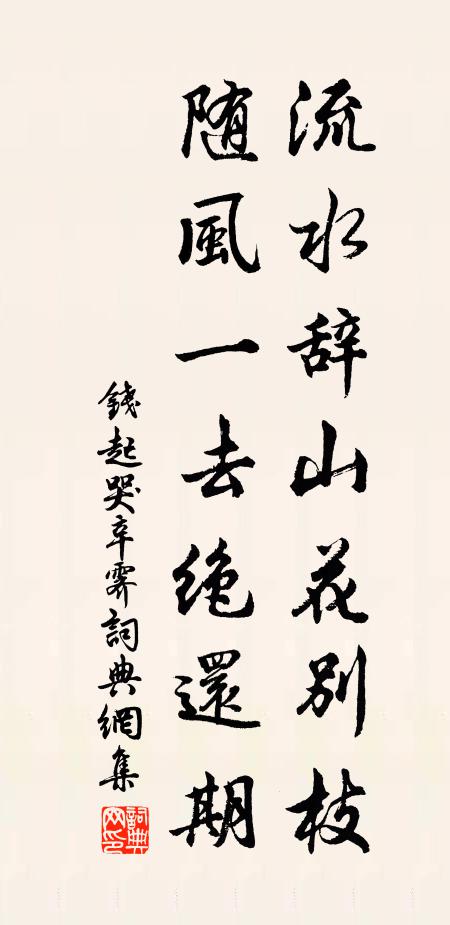 流水辞山花别枝
随風一去绝還期
錢起哭辛霁詞典網集
詞典网印